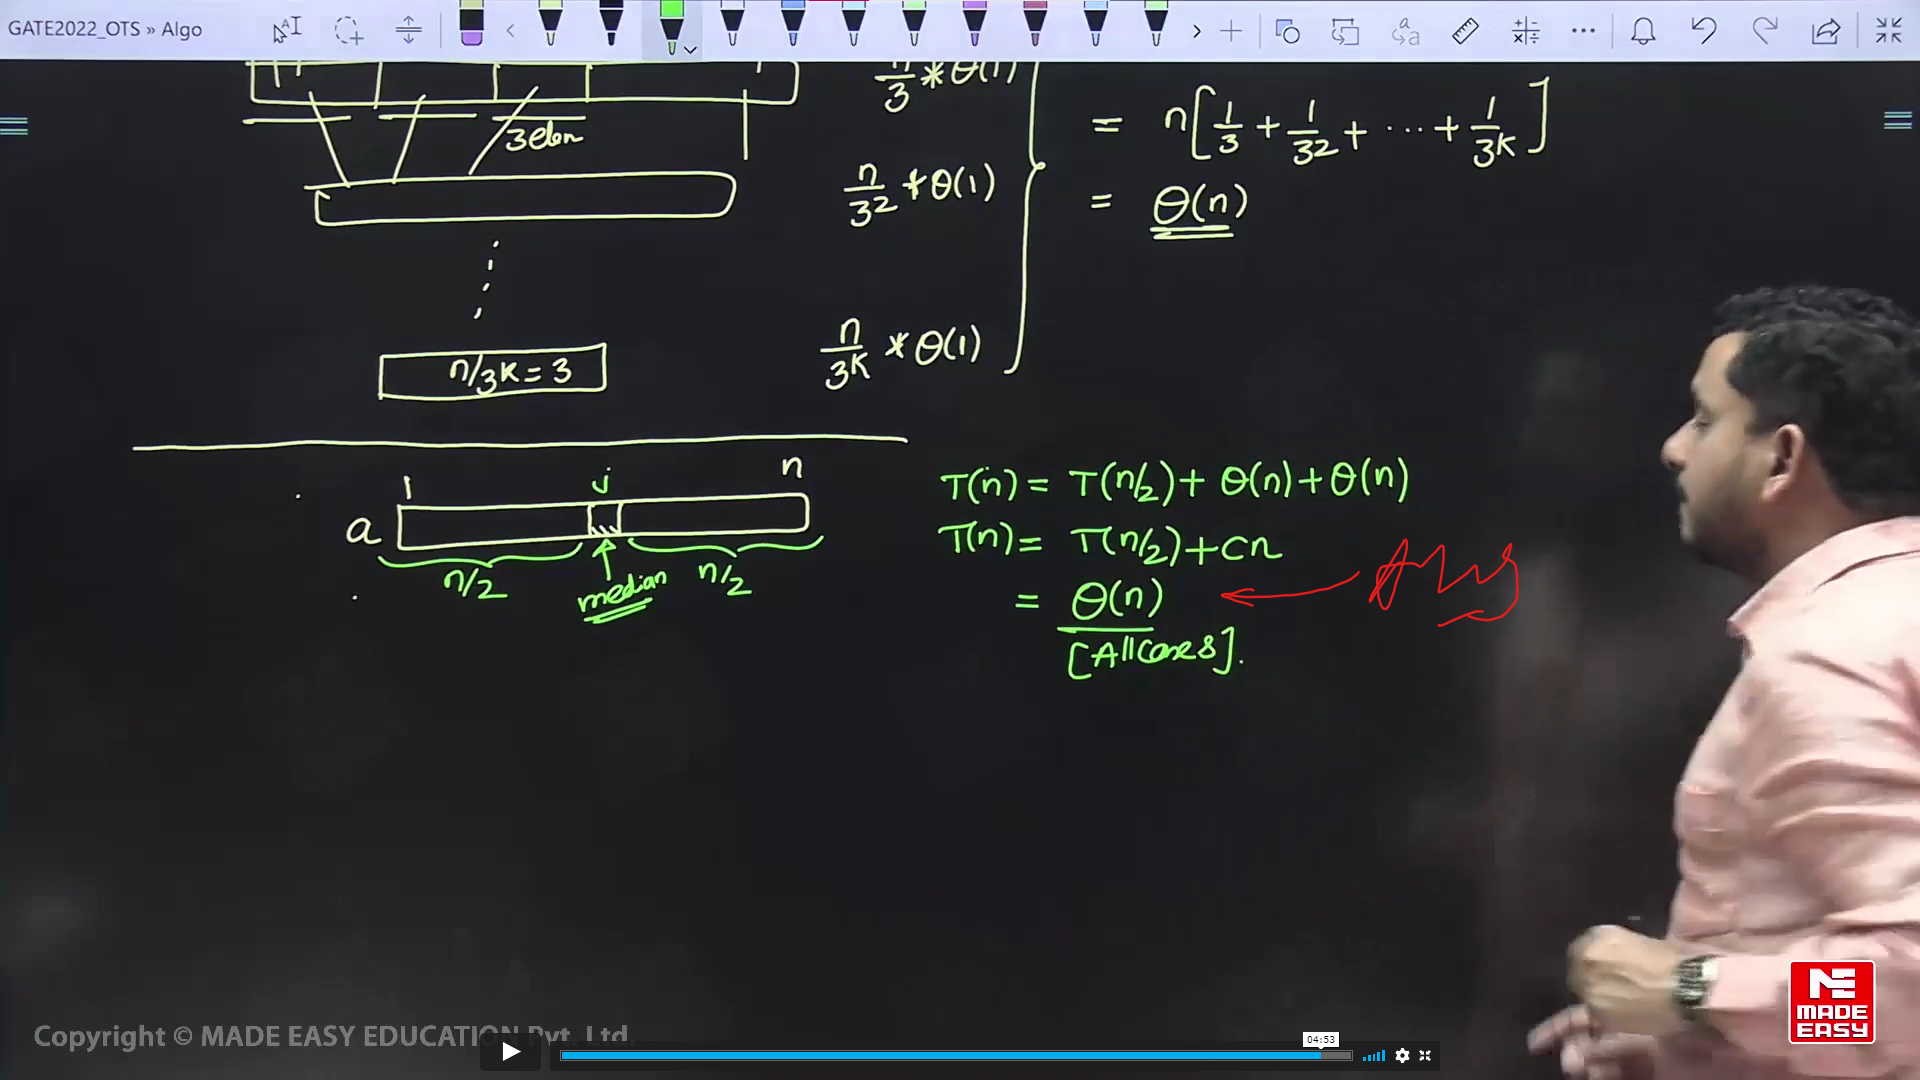 GATE2022_OTS » Algo
n/3 * θ(1)
3 elem
= n[1/3 + 1/3² + ... + 1/3ᴷ]
n/3² * θ(1)
= θ(n)
n/3ᴷ = 3
n/3ᴷ * θ(1)
1 j n
a
n/2 median n/2
T(n) = T(n/2) + θ(n) + θ(n)
T(n) = T(n/2) + cn
= θ(n) ← Ans
[All Cases].
Copyright © MADE EASY EDUCATION Pvt. Ltd.
04:53
ME
MADE
EASY